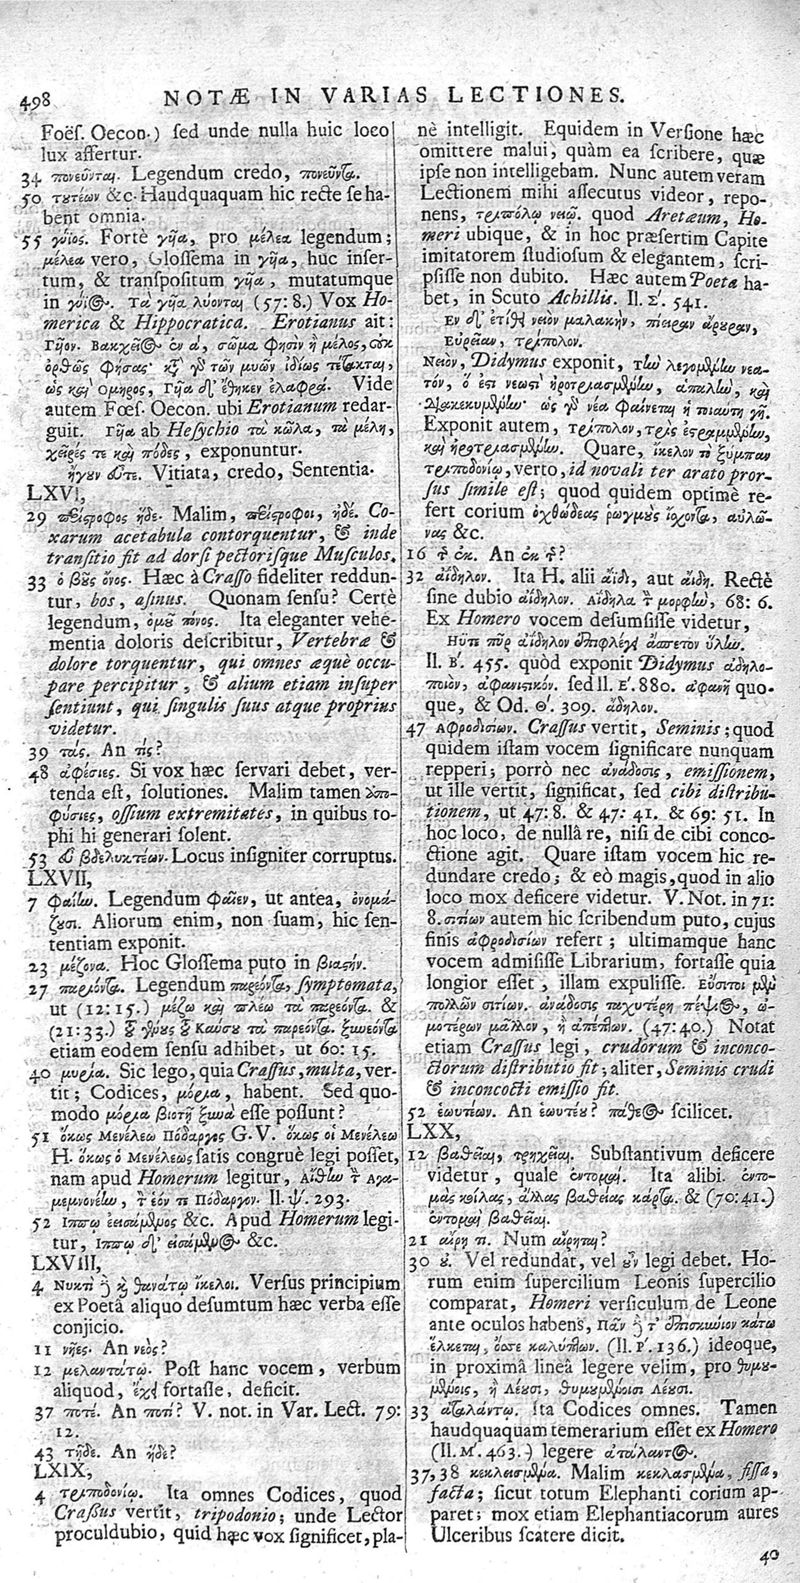 498
NOTÆ IN VARIAS LECTIONES.
Foës. Oecon.) sed unde nulla huic loco
lux affertur.
34 πονεῦνται. Legendum credo, πονεῦντα.
50 τουτέων &c. Haudquaquam hic recte se ha-
bent omnia.
55 γύιος. Fortè γῆα, pro μέλεα legendum;
μέλεα vero, Glossema in γῆα, huc inser-
tum, & transpositum γῆα, mutatumque
in γύιος. Τὰ γῆα λύονται (57: 8.) Vox Ho-
merica & Hippocratica. Erotianus ait:
Γῆον. Βακχεῖος ἐν α, σῶμα φησὶν ἢ μέλος, οὐκ
ὀρθῶς φήσας· κατὰ γὸ τῶν μυῶν ἰδίως τέτακται,
ὡς καὶ Ομηρος, Γῆα δ' ἔθηκεν ἐλαφρά. Vide
autem Fœs. Oecon. ubi Erotianum redar-
guit. Γῆα ab Hesychio τὰ κῶλα, τὰ μέλη,
χεῖρές τε καὶ πόδες, exponuntur.
ἤγουν ὥτε. Vitiata, credo, Sententia.
LXVI,
29 περίστροφος ἥδε. Malim, περίστροφοι, ἠδέ. Co-
xarum acetabula contorquentur, & inde
transitio fit ad dorsi pectorisque Musculos.
33 ὁ βοῦς ὄνος. Hæc à Crasso fideliter reddun-
tur, bos, asinus. Quonam sensu? Certè
legendum, ὁμοῦ πόνος. Ita eleganter vehe-
mentia doloris describitur, Vertebræ &
dolore torquentur, qui omnes æquè occu-
pare percipitur, & alium etiam insuper
sentiunt, qui singulis suus atque proprius
videtur.
39 τάς. An τίς?
48 ἀφέσιες. Si vox hæc servari debet, ver-
tenda est, solutiones. Malim tamen ἀπο-
φύσιες, ossium extremitates, in quibus to-
phi hi generari solent.
53 βδελυκτέων. Locus insigniter corruptus.
LXVII,
7 φαίλω. Legendum φαῖεν, ut antea, ὀνομά-
ζουσι. Aliorum enim, non suam, hic sen-
tentiam exponit.
23 μέζονα. Hoc Glossema puto in βιαιήν.
27 παρεόντα. Legendum παρεόντα, symptomata,
ut (12: 15.) μέζω καὶ πλέω τὰ παρεόντα. &
(21: 33.) γένους Καύσου τὰ παρεόντα. ξυνεόντα
etiam eodem sensu adhibet, ut 60: 15.
40 μυρία. Sic lego, quia Crassus, multa, ver-
tit; Codices, μόρια, habent. Sed quo-
modo μόρια βιοτῇ ξυνὰ esse possunt?
51 ὅκως Μενέλεω Πόδαργος G. V. ὅκως οἱ Μενέλεω
H. ὅκως ὁ Μενέλεως satis congruè legi posset,
nam apud Homerum legitur, Αἴθω τ Αγα-
μεμνονέω, τ ἑόν τε Πόδαργον. Il. ψ. 293.
52 Ιππῳ ἐεισάμενος &c. Apud Homerum legi-
tur, Ιππῳ δ' εἰσάμενος &c.
LXVIII,
4 Νυκτὶ καὶ θανάτῳ ἴκελοι. Versus principium
ex Poetâ aliquo desumtum hæc verba esse
conjicio.
11 νῆες. An νεὸς?
12 μελαντάτῳ. Post hanc vocem, verbum
aliquod, ἔχει fortasse, deficit.
37 ποτέ. An ποτί? V. not. in Var. Lect. 79:
12.
43 τῇδε. An ἥδε?
LXIX,
4 τριποδονίῳ. Ita omnes Codices, quod
Crassus vertit, tripodonio; unde Lector
proculdubio, quid hæc vox significet, pla-
nè intelligit. Equidem in Versione hæc
omittere malui, quàm ea scribere, quæ
ipse non intelligebam. Nunc autem veram
Lectionem mihi assecutus videor, repo-
nens, τριπόλῳ νειῷ. quod Aretæum, Ho-
meri ubique, & in hoc præsertim Capite
imitatorem studiosum & elegantem, scri-
psisse non dubito. Hæc autem Poeta ha-
bet, in Scuto Achillis. Il. Σ'. 541.
Εν δ' ἐτίθει νειὸν μαλακὴν, πίειραν ἄρουραν,
Εὐρεῖαν, τρίπολον.
Νειὸν, Didymus exponit, τὴν λεγομένην νεα-
τόν, ὅ ἐστι νεωστὶ ἠροτριασμένην, ἁπαλὴν, καὶ
διακεκυμένην· ὡς γὸ νέα φαίνεται ἡ τοιαύτη γῆ.
Exponit autem, τρίπολον, τρὶς ἐστραμμένην,
καὶ ἠροτριασμένην. Quare, ἴκελον τὸ ξύμπαν
τριποδονίῳ, verto, id novali ter arato pror-
sus simile est; quod quidem optimè re-
fert corium ὀχθώδεας ῥωγμοὺς ἴσχοντα, αὐλῶ-
νας &c.
16 τ ἐκ. An ἐκ τ?
32 ἀΐδηλον. Ita H. alii ἀΐδι, aut ἀΐδη. Rectè
sine dubio ἀΐδηλον. Αΐδηλα τ μορφὴν, 68: 6.
Ex Homero vocem desumsisse videtur,
Ηΰτε πῦρ ἀΐδηλον ἐπιφλέγει ἄσπετον ὕλην.
Il. Β'. 455. quòd exponit Didymus ἀδηλο-
ποιὸν, ἀφανιστικόν. sed Il. Ε'. 880. ἀφανῆ quo-
que, & Od. Θ'. 309. ἄδηλον.
47 Αφροδισίων. Crassus vertit, Seminis; quod
quidem istam vocem significare nunquam
repperi; porrò nec ἀνάδοσις, emissionem,
ut ille vertit, significat, sed cibi distribu-
tionem, ut 47: 8. & 47: 41. & 69: 51. In
hoc loco, de nullâ re, nisi de cibi conco-
ctione agit. Quare istam vocem hic re-
dundare credo; & eò magis, quod in alio
loco mox deficere videtur. V. Not. in 71:
8. σιτίων autem hic scribendum puto, cujus
finis ἀφροδισίων refert; ultimamque hanc
vocem admisisse Librarium, fortasse quia
longior esset, illam expulisse. Εὔσιτοι μὲν
πολλῶν σιτίων. ἀνάδοσις παχυτέρη πέψιος, ὠ-
μοτέρων μᾶλλον, ἢ ἀπέπτων. (47: 40.) Notat
etiam Crassus legi, crudorum & inconco-
ctorum distributio fit; aliter, Seminis crudi
& inconcocti emissio fit.
52 ἑωυτέων. An ἑωυτέου? πάθεος scilicet.
LXX,
12 βαθεῖαι, τρηχεῖαι. Substantivum deficere
videtur, quale ἐντομαί. Ita alibi. ἐντο-
μὰς κοίλας, ἀλλὰς βαθείας κάρτα. & (70: 41.)
ἐντομαὶ βαθεῖαι.
21 αἴρῃ τι. Num αἴρηται?
30 οὐ. Vel redundat, vel οὖν legi debet. Ho-
rum enim supercilium Leonis supercilio
comparat, Homeri versiculum de Leone
ante oculos habens, Πᾶν δέ τ' ἐπισκύνιον κάτω
ἕλκεται, ὄσσε καλύπτων. (Il. Ρ'. 136.) ideoque,
in proximâ lineâ legere velim, pro θυμου-
μένοις, ἢ Λέουσι, θυμουμένοισι Λέουσι.
33 ἀταλάντῳ. Ita Codices omnes. Tamen
haudquaquam temerarium esset ex Homero
(Il. Μ'. 463.) legere ἀτάλαντος.
37, 38 κεκλεισμένα. Malim κεκλασμένα, fissa,
facta; sicut totum Elephanti corium ap-
paret; mox etiam Elephantiacorum aures
Ulceribus scatere dicit.
40